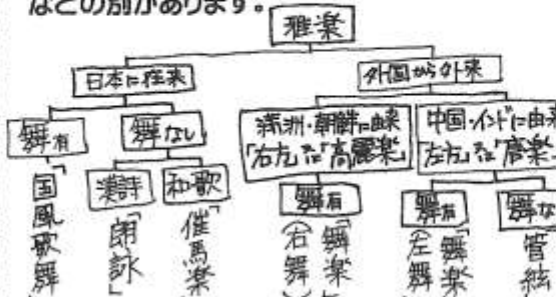 などの別があります。
雅楽
日本に往来
外国から外来
舞有
舞なし
満洲・朝鮮に由来
「右方」又は「高麗楽」
中国・インドに由来
左方」又は「唐楽」
漢詩
和歌
舞有
舞有
舞な
「国風歌舞
「朗詠」
「催馬楽
「舞楽
(右舞)
「舞楽
(左舞
「管絃